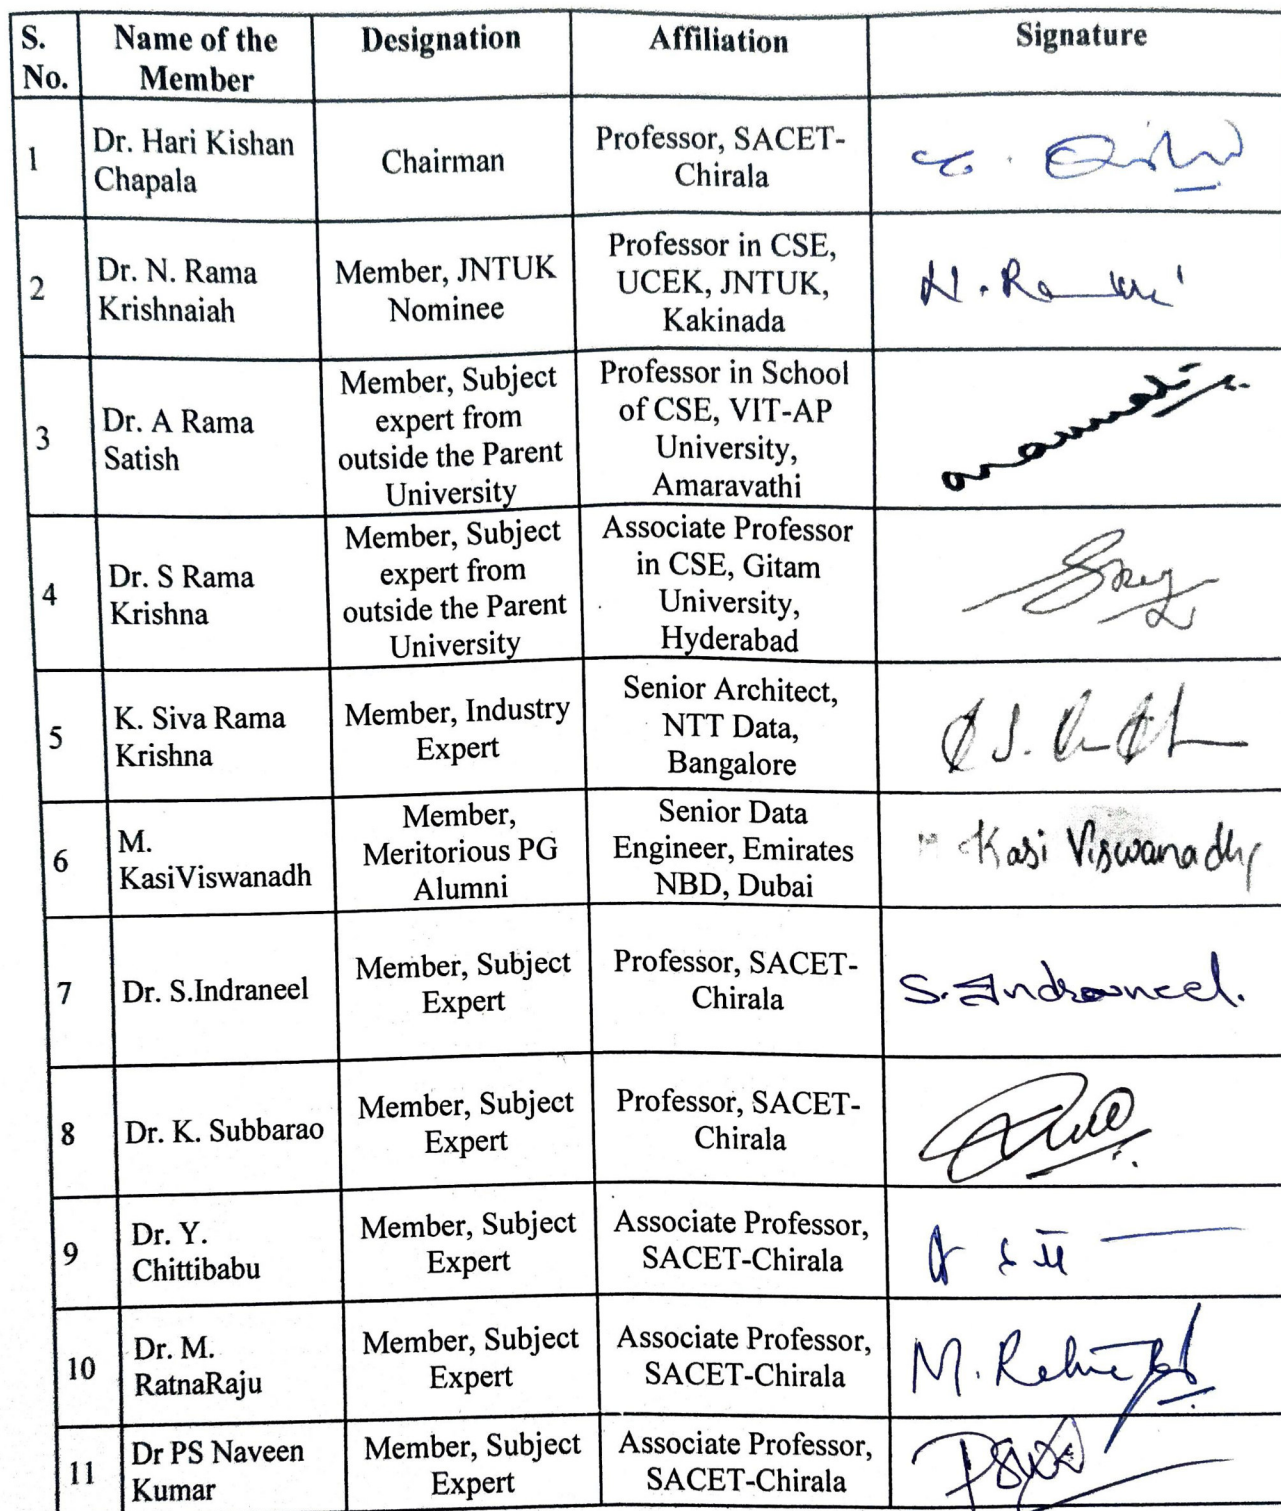 S. No.
Name of the Member
Designation
Affiliation
Signature
1
Dr. Hari Kishan
Chapala
Chairman
Professor, SACET-
Chirala
2
Dr. N. Rama
Krishnaiah
Member, JNTUK
Nominee
Professor in CSE,
UCEK, JNTUK,
Kakinada
3
Dr. A Rama
Satish
Member, Subject
expert from
outside the Parent
University
Professor in School
of CSE, VIT-AP
University,
Amaravathi
4
Dr. S Rama
Krishna
Member, Subject
expert from
outside the Parent
University
Associate Professor
in CSE, Gitam
University,
Hyderabad
5
K. Siva Rama
Krishna
Member, Industry
Expert
Senior Architect,
NTT Data,
Bangalore
6
M.
KasiViswanadh
Member,
Meritorious PG
Alumni
Senior Data
Engineer, Emirates
NBD, Dubai
Kasi Viswanadh
7
Dr. S.Indraneel
Member, Subject
Expert
Professor, SACET-
Chirala
S. Indraneel.
8
Dr. K. Subbarao
Member, Subject
Expert
Professor, SACET-
Chirala
9
Dr. Y.
Chittibabu
Member, Subject
Expert
Associate Professor,
SACET-Chirala
10
Dr. M.
RatnaRaju
Member, Subject
Expert
Associate Professor,
SACET-Chirala
11
Dr PS Naveen
Kumar
Member, Subject
Expert
Associate Professor,
SACET-Chirala